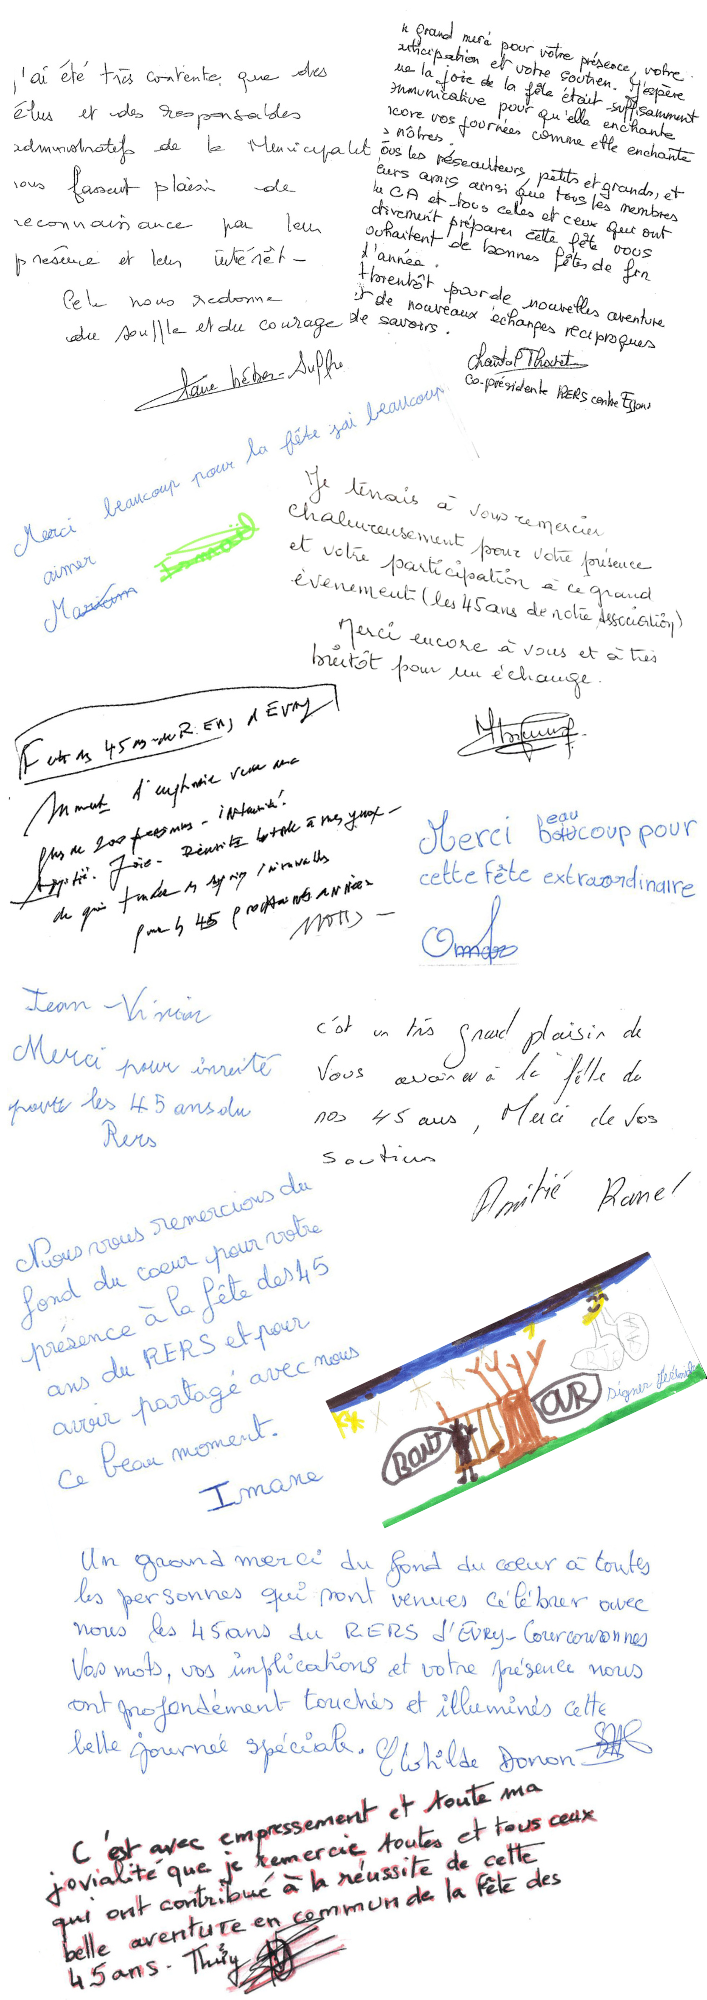 J'ai été très contente que des
élus et des responsables
administratifs de la Municipalité
nous fassent plaisir de
reconnaissance par leur
présence et leur intérêt -
Cela nous redonne
du souffle et du courage
Claire Héber-Suffrin
n grand merci pour votre présence, votre
articipation et votre soutien. J'espère
ue la joie de la fête était suffisamment
ommunicative pour qu'elle enchante
ncore vos journées comme elle enchante
s nôtres.
ous les réseauteurs, petits et grands, et
eurs amis ainsi que tous les membres
du CA et tous celles et ceux qui ont
ctivement préparer cette fête vous
ouhaitent de bonnes fêtes de fin
d'année.
bientôt pour de nouvelles aventure
et de nouveaux échanges réciproques
de savoirs.
Chantal
co-présidente RERS centre Essonne
Merci beaucoup pour la fête j'ai beaucoup
aimer
Je tenais à vous remercier
chaleureusement pour votre présence
et votre participation à ce grand
évènement (les 45 ans de notre association)
Merci encore à vous et à très
bientôt pour un échange.
45 ans du R. d'Evry
Moment d'euphorie
plus de 200 personnes - intensité.
Amitié. Joie. Réussite totale à mes yeux -
de quoi
pour les 45 prochaines années
Merci beaucoup pour
cette fête extraordinaire
Omar
Jean - Vivien
Merci pour invité
pour les 45 ans du
Rers
c'est un très grand plaisir de
vous avoir à la fête de
nos 45 ans, Merci de vos
soutiens
Amitié
Nous vous remercions du
fond du coeur pour votre
présence à la fête des 45
ans du RERS et pour
avoir partagé avec nous
ce beau moment.
Imane
BONJ
OUR
signer
Un grand merci du fond du coeur à toutes
les personnes qui sont venues célébrer avec
nous les 45 ans du RERS d'Evry-Courcouronnes
Vos mots, vos implications et votre présence nous
ont profondément touchés et illuminés cette
belle journée spéciale. Clotilde Donon
C'est avec empressement et toute ma
jovialité que je remercie toutes et tous ceux
qui ont contribué à la réussite de cette
belle aventure en commun de la fête des
45 ans. Thiéry